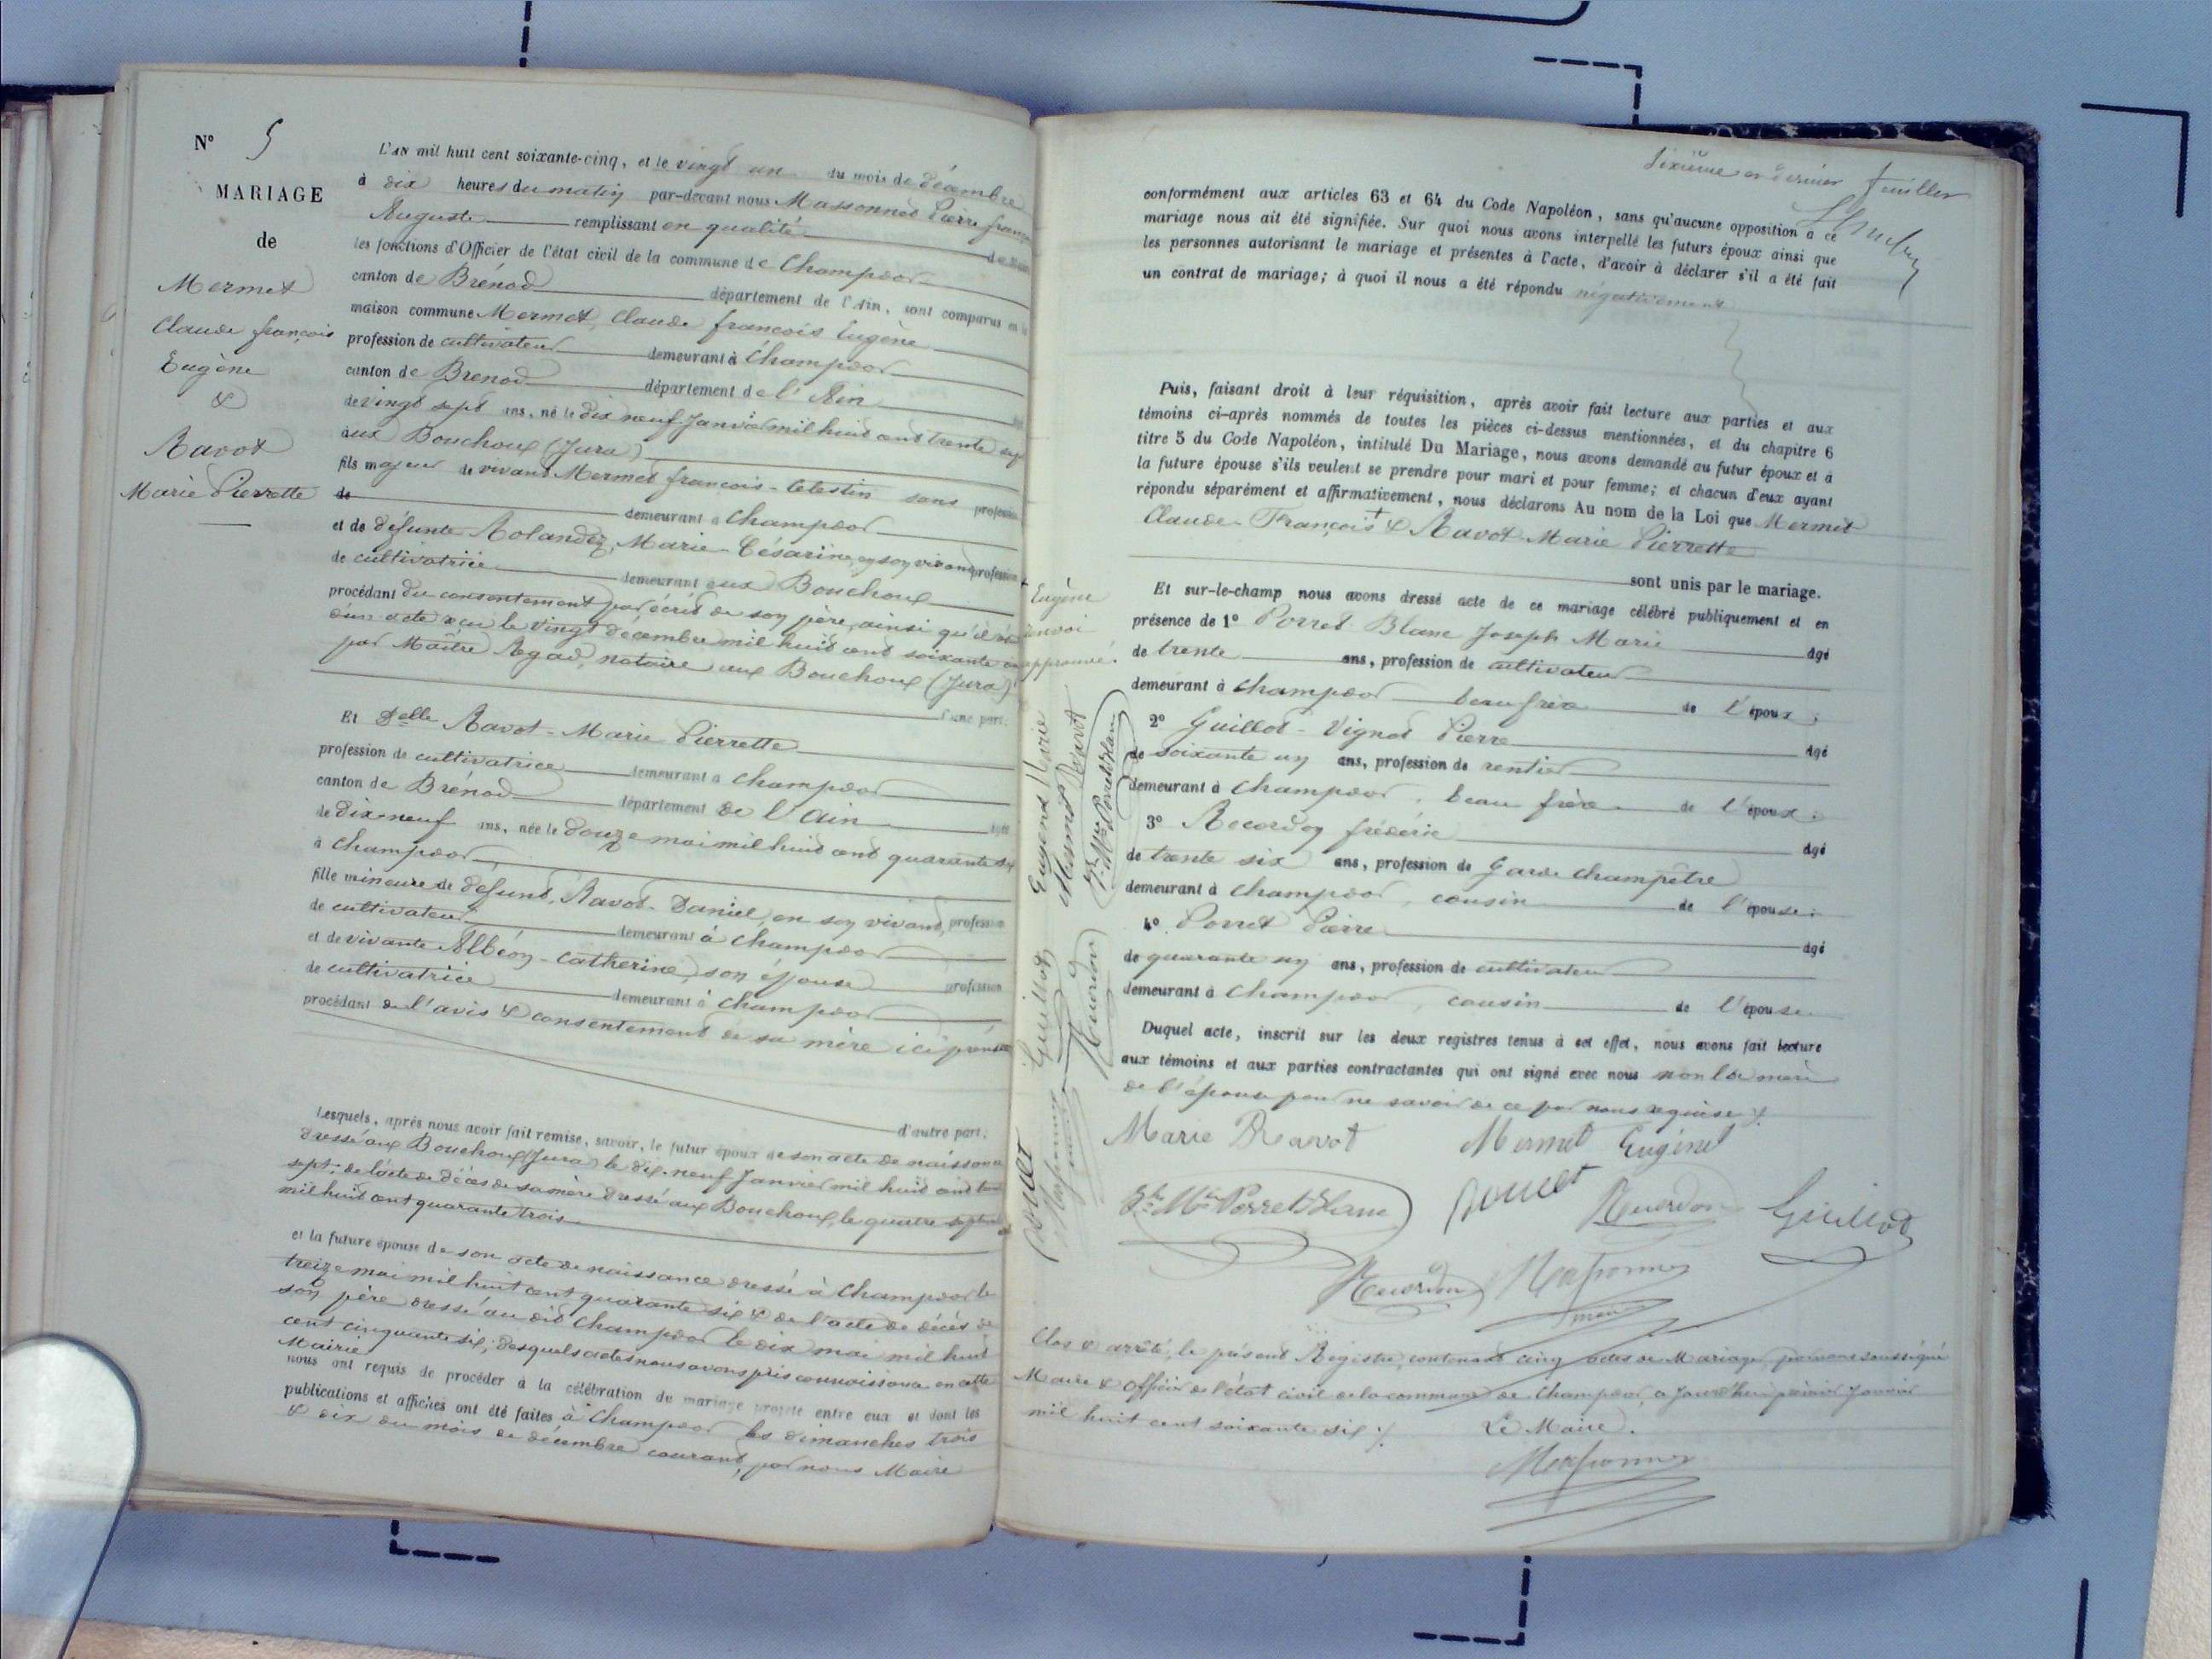 N° 5
MARIAGE
de
Mermet
Claude françois
Eugène
&
Ravot
Marie Pierrette
L'AN mil huit cent soixante-cinq, et le vingt un du mois de décembre
à dix heures du matin par-devant nous Massonnet Pierre françois
Auguste remplissant en qualité de Maire
les fonctions d'Officier de l'état civil de la commune de Champdor
canton de Brénod département de l'Ain, sont comparus en la
maison commune Mermet, Claude françois Eugène
profession de cultivateur demeurant à Champdor
canton de Brenod département de l'Ain
de vingt sept ans, né le dix neuf Janvier mil huit cent trente sept
aux Bouchoux (Jura)
fils majeur de vivant Mermet françois-Celestin sans profession
de demeurant à Champdor
et de défunte Rolandez, Marie-Césarine, en son vivant profession
de cultivatrice demeurant aux Bouchoux
procédant du consentement par écrit de son père, ainsi qu'il résulte
d'un acte reçu le vingt décembre mil huit cent soixante cinq
par Maître Régad, notaire aux Bouchoux (Jura)
d'une part.
Et Delle Ravot-Marie Pierrette
profession de cultivatrice demeurant à Champdor
canton de Brénod département de l'Ain âgée
de dix-neuf ans, née le douze mai mil huit cent quarante six
à Champdor
fille mineure de défunt, Ravot-Daniel, en son vivant, profession
de cultivateur demeurant à Champdor
et de vivante Albéon-Catherine, son épouse profession
de cultivatrice demeurant à Champdor
procédant de l'avis & consentement de sa mère ici présente
d'autre part.
Lesquels, après nous avoir fait remise, savoir, le futur époux de son acte de naissance
dressé aux Bouchoux (Jura) le dix-neuf Janvier mil huit cent trente
sept; de l'acte de décès de sa mère dressé aux Bouchoux, le quatre septembre
mil huit cent quarante trois
et la future épouse de son acte de naissance dressé à Champdor le
treize mai mil huit cent quarante six & de l'acte de décès de
son père dressé au dit Champdor le dix mai mil huit
cent cinquante six; desquels actes nous avons pris connaissance en cette
Mairie
nous ont requis de procéder à la célébration du mariage projeté entre eux et dont les
publications et affiches ont été faites à Champdor les dimanches trois
& dix du mois de décembre courant, par nous Maire
+ Eugène
renvoi
approuvé.
Eugene Marie
Mermet Ravot
Jh Mie Porret Blanc
Guillot
Recordon
Porret
Massonnet
maire
Sixième et dernier feuillet
conformément aux articles 63 et 64 du Code Napoléon, sans qu'aucune opposition à ce
mariage nous ait été signifiée. Sur quoi nous avons interpellé les futurs époux ainsi que
les personnes autorisant le mariage et présentes à l'acte, d'avoir à déclarer s'il a été fait
un contrat de mariage; à quoi il nous a été répondu négativement
Puis, faisant droit à leur réquisition, après avoir fait lecture aux parties et aux
témoins ci-après nommés de toutes les pièces ci-dessus mentionnées, et du chapitre 6
titre 5 du Code Napoléon, intitulé Du Mariage, nous avons demandé au futur époux et à
la future épouse s'ils veulent se prendre pour mari et pour femme; et chacun d'eux ayant
répondu séparément et affirmativement, nous déclarons Au nom de la Loi que Mermet
Claude-François + & Ravot Marie Pierrette
sont unis par le mariage.
Et sur-le-champ nous avons dressé acte de ce mariage célébré publiquement et en
présence de 1° Porret Blanc Joseph Marie âgé
de trente ans, profession de cultivateur
demeurant à Champdor beau frère de l'époux;
2° Guillot-Vignot Pierre âgé
de soixante un ans, profession de rentier
demeurant à Champdor, beau frère de l'époux;
3° Recordon fréderic âgé
de trente six ans, profession de Garde champêtre
demeurant à Champdor, cousin de l'épouse;
4° Porret Pierre âgé
de quarante un ans, profession de cultivateur
demeurant à Champdor, cousin de l'épouse.
Duquel acte, inscrit sur les deux registres tenus à cet effet, nous avons fait lecture
aux témoins et aux parties contractantes qui ont signé avec nous non la mère
de l'épouse pour ne savoir de ce par nous requise ./.
Marie Ravot Mermet Eugène
Jh Mie Porret Blanc Porret Recordon Guillot
Recordon Massonnet
maire
Clos & arrêté, le présent Registre, contenant cinq actes de Mariage, par nous soussigné
Maire & Officier de l'état civil de la commune de Champdor, ce jourd'hui premier Janvier
mil huit cent soixante six ./. Le Maire.
Massonnet